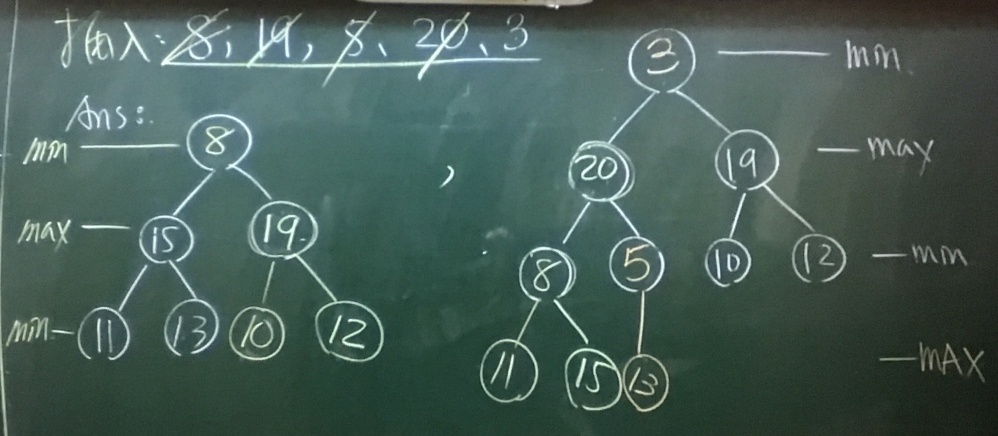 插入: 8, 19, 5、20、3
Ans:
min 8
max 15 19
min 11 13 10 12
,
3 min
20 19 max
8 5 10 12 min
11 15 13 MAX